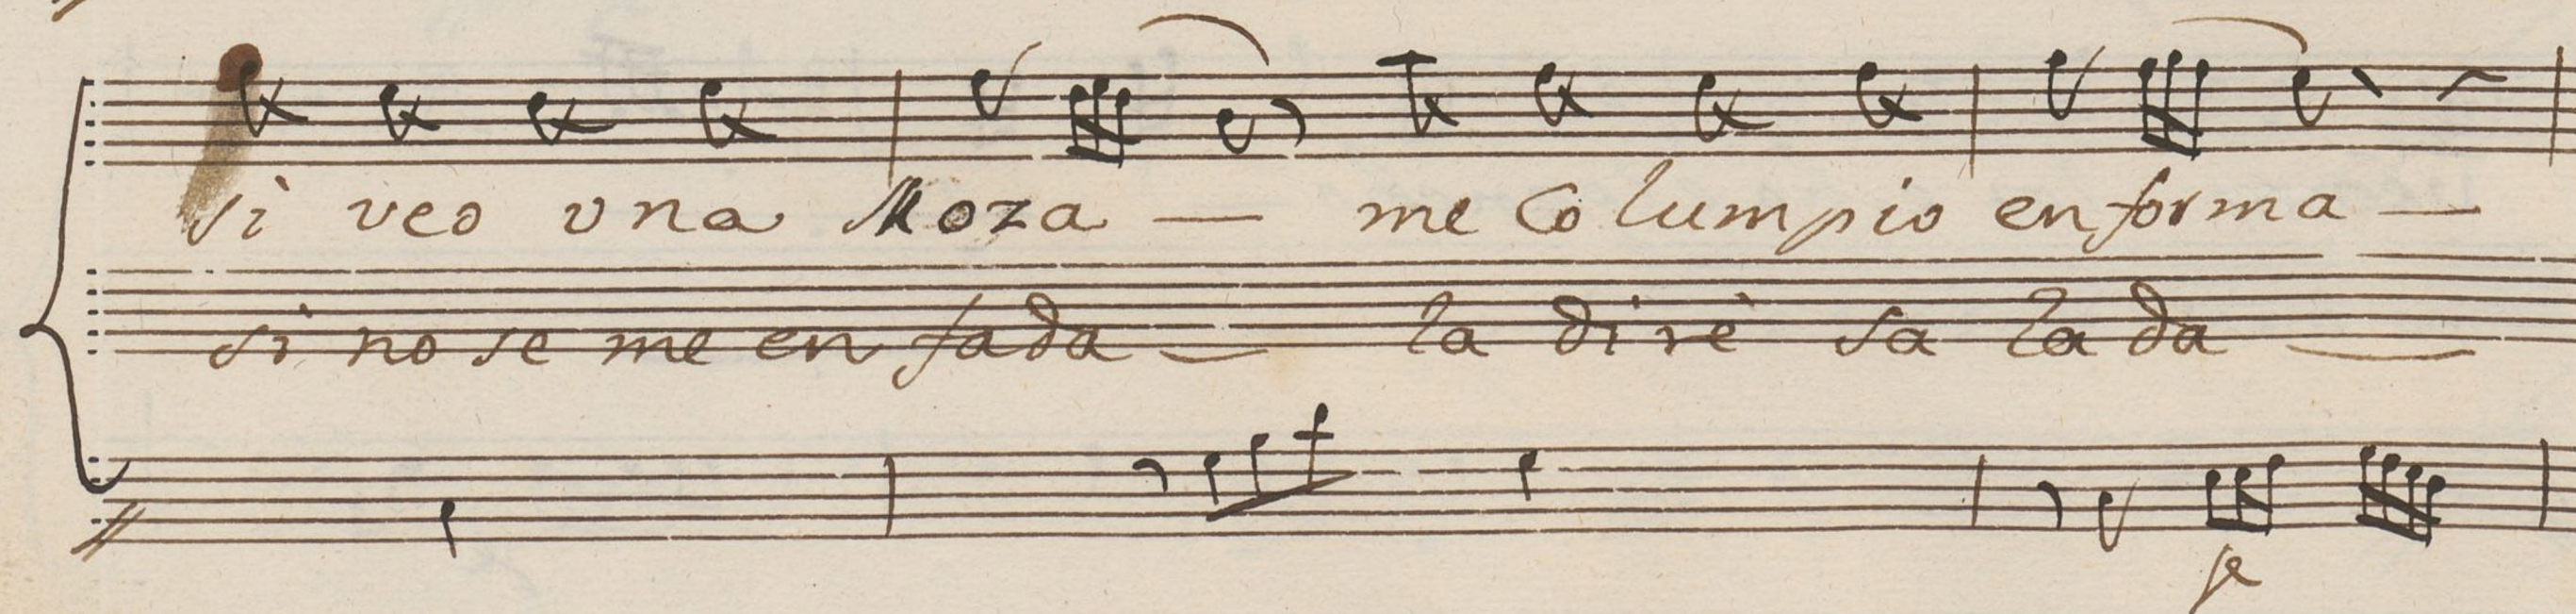 sì veo vna Moza — me Columpio en forma —
si no se me en fada — la dirè sa lada —